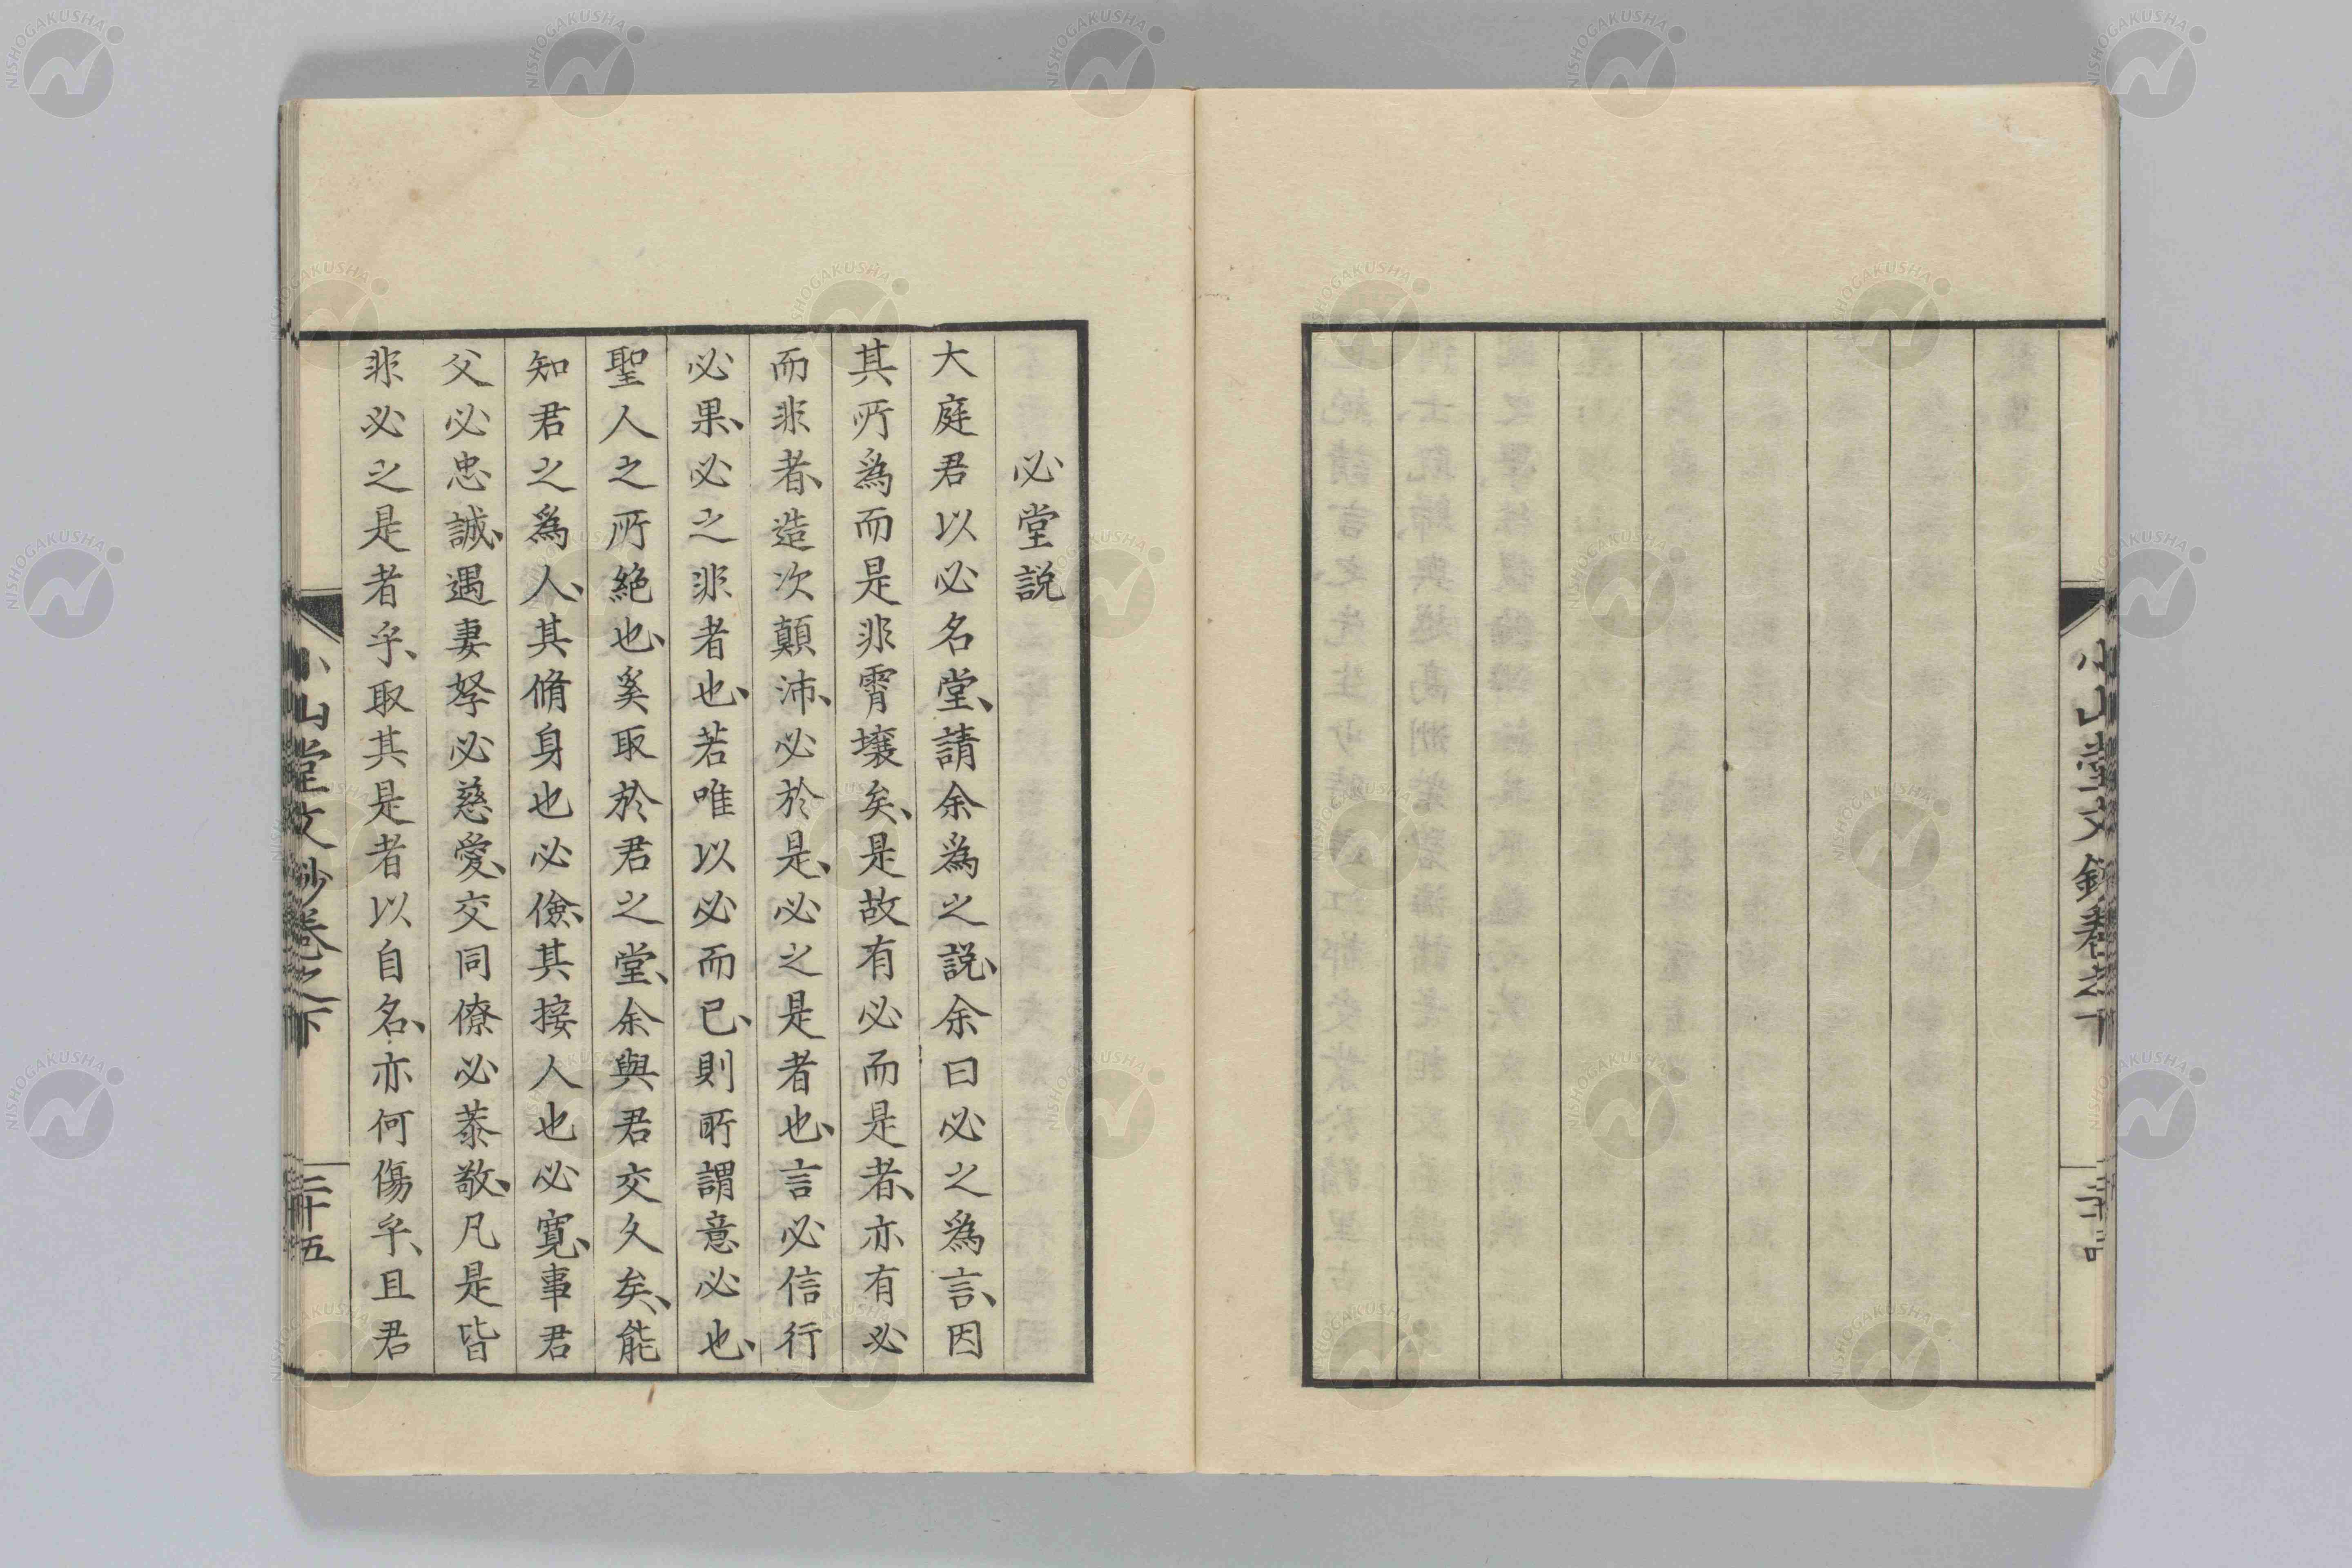 小山堂文鈔卷之下
二十四
必堂説
大庭君以必名堂、請余爲之説、余曰必之爲言、因
其所爲而是非霄壤矣、是故有必而是者、亦有必
而非者、造次顛沛、必於是、必之是者也、言必信行
必果、必之非者也、若唯以必而已、則所謂意必也、
聖人之所絶也、奚取於君之堂、余與君交久矣、能
知君之爲人、其脩身也必儉、其接人也必寬、事君
父必忠誠、遇妻孥必慈愛、交同僚必恭敬、凡是皆
非必之是者乎、取其是者以自名、亦何傷乎、且君
小山堂文鈔卷之下
二十五